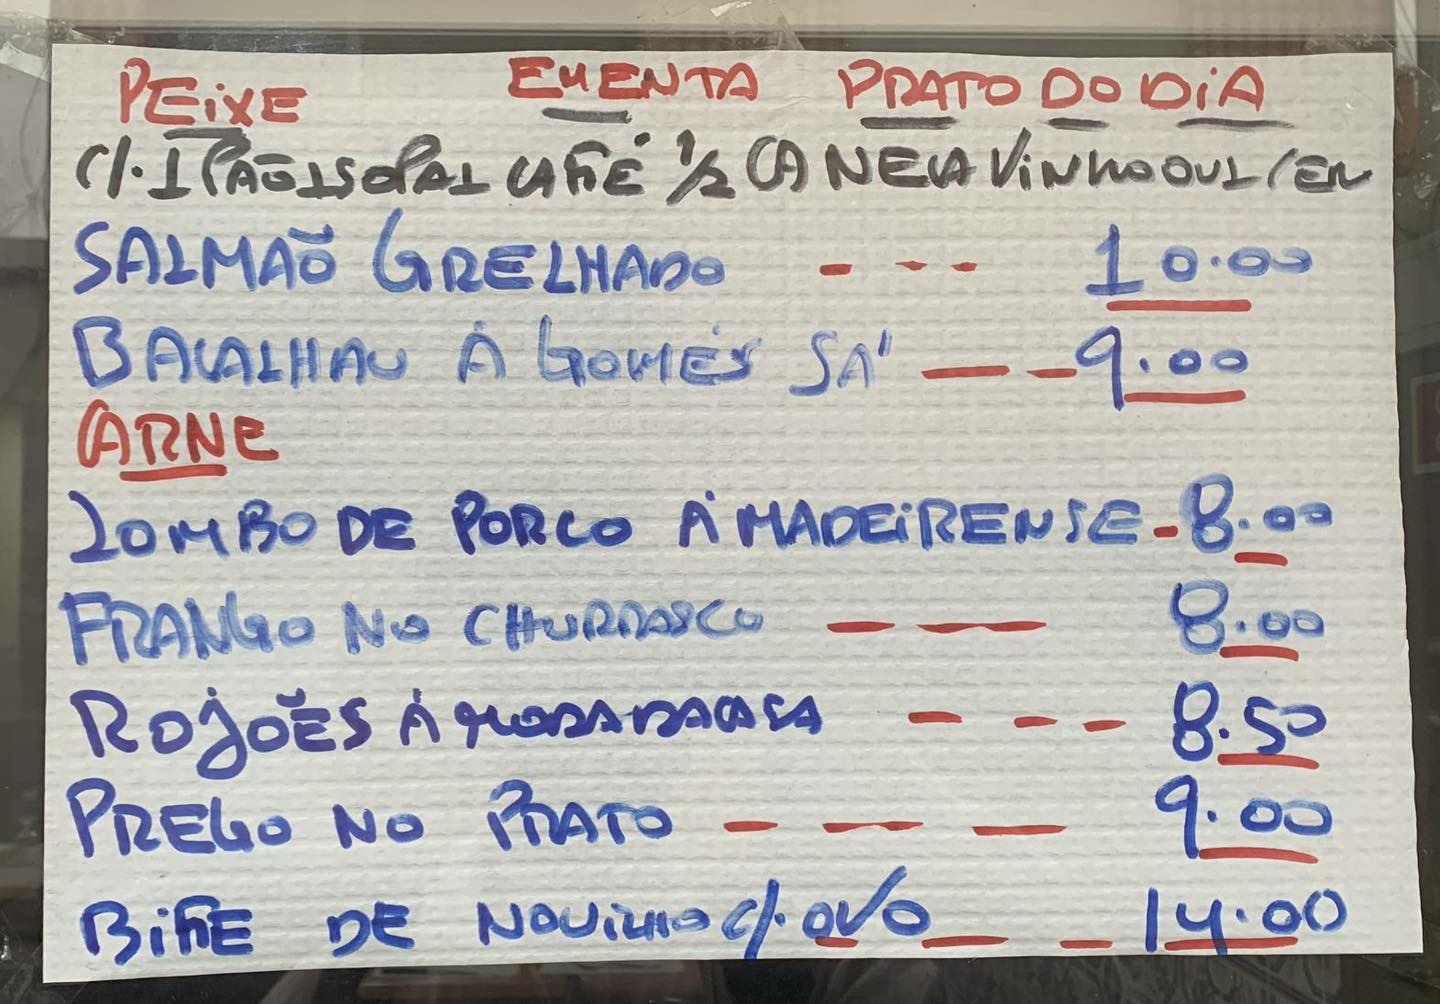 PEiXE EMENTA PRATO DO DiA
C/. 1 PÃO 1 SOPA 1 CAFÉ 1/2 CANECA ViNHO OU 1 CER
SALMÃO GRELHADO - - - 10.00
BACALHAU À GOMÉS SÁ - - 9.00
CARNE
LOMBO DE PORCO À MADEiRENSE - 8.00
FRANGO NO CHURRASCO - - 8.00
ROJÕES À MODA DA CASA - - - 8.50
PREGO NO PRATO - - - 9.00
BiFE DE NOViLHO C/. OVO - - 14.00